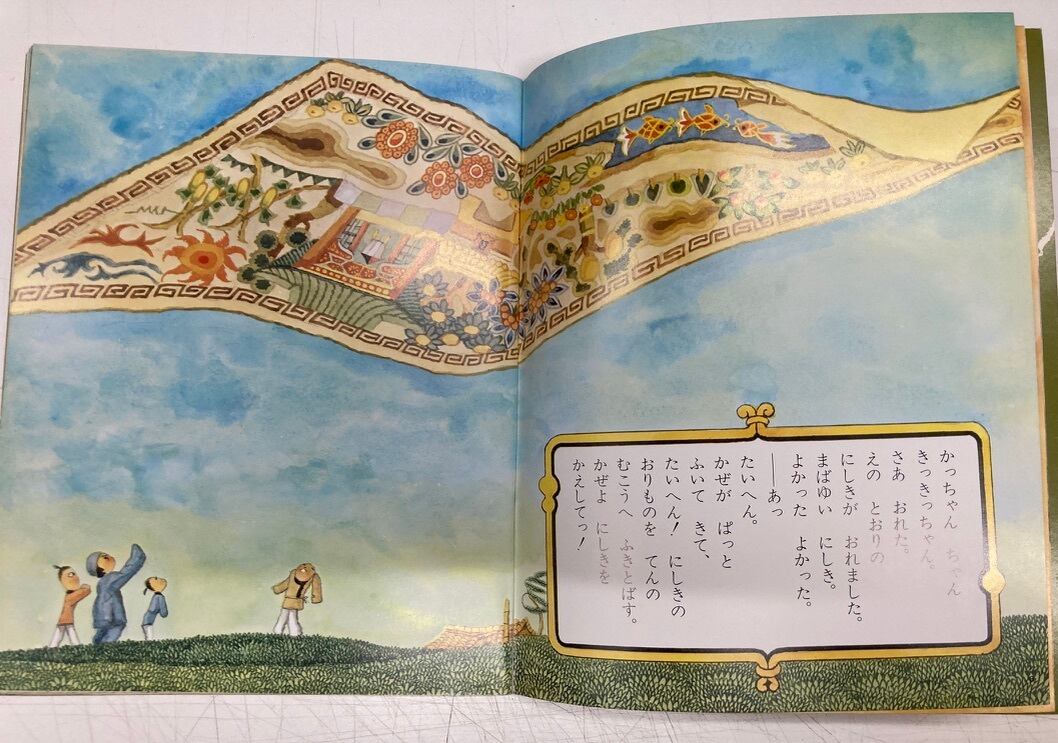 かっちゃん　ちゃん
きっきっちゃん。
さあ　おれた。
えの　とおりの
にしきが　おれました。
まばゆい　にしき。
よかった　よかった。
――あっ
たいへん。
かぜが　ぱっと
ふいて　きて、
たいへん！　にしきの
おりものを　てんの
むこうへ　ふきとばす。
かぜよ　にしきを
かえしてっ！